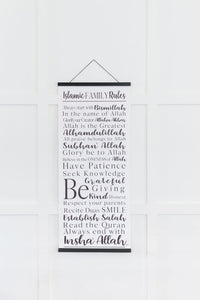 Islamic FAMILY Rules
Always start with Bismillah
In the name of Allah
Glorify our Creator Allahu Akbar
Allah is the Greatest
Alhamdulillah
All praise belongs to Allah
Subhan Allah
Glory be to Allah
Believe in the ONENESS of Allah
Have Patience
Seek Knowledge
Be Grateful
Giving
Kind Honest
Respect your parents
Recite Duas SMILE
Establish Salah
Read the Quran
Always end with
Insha Allah